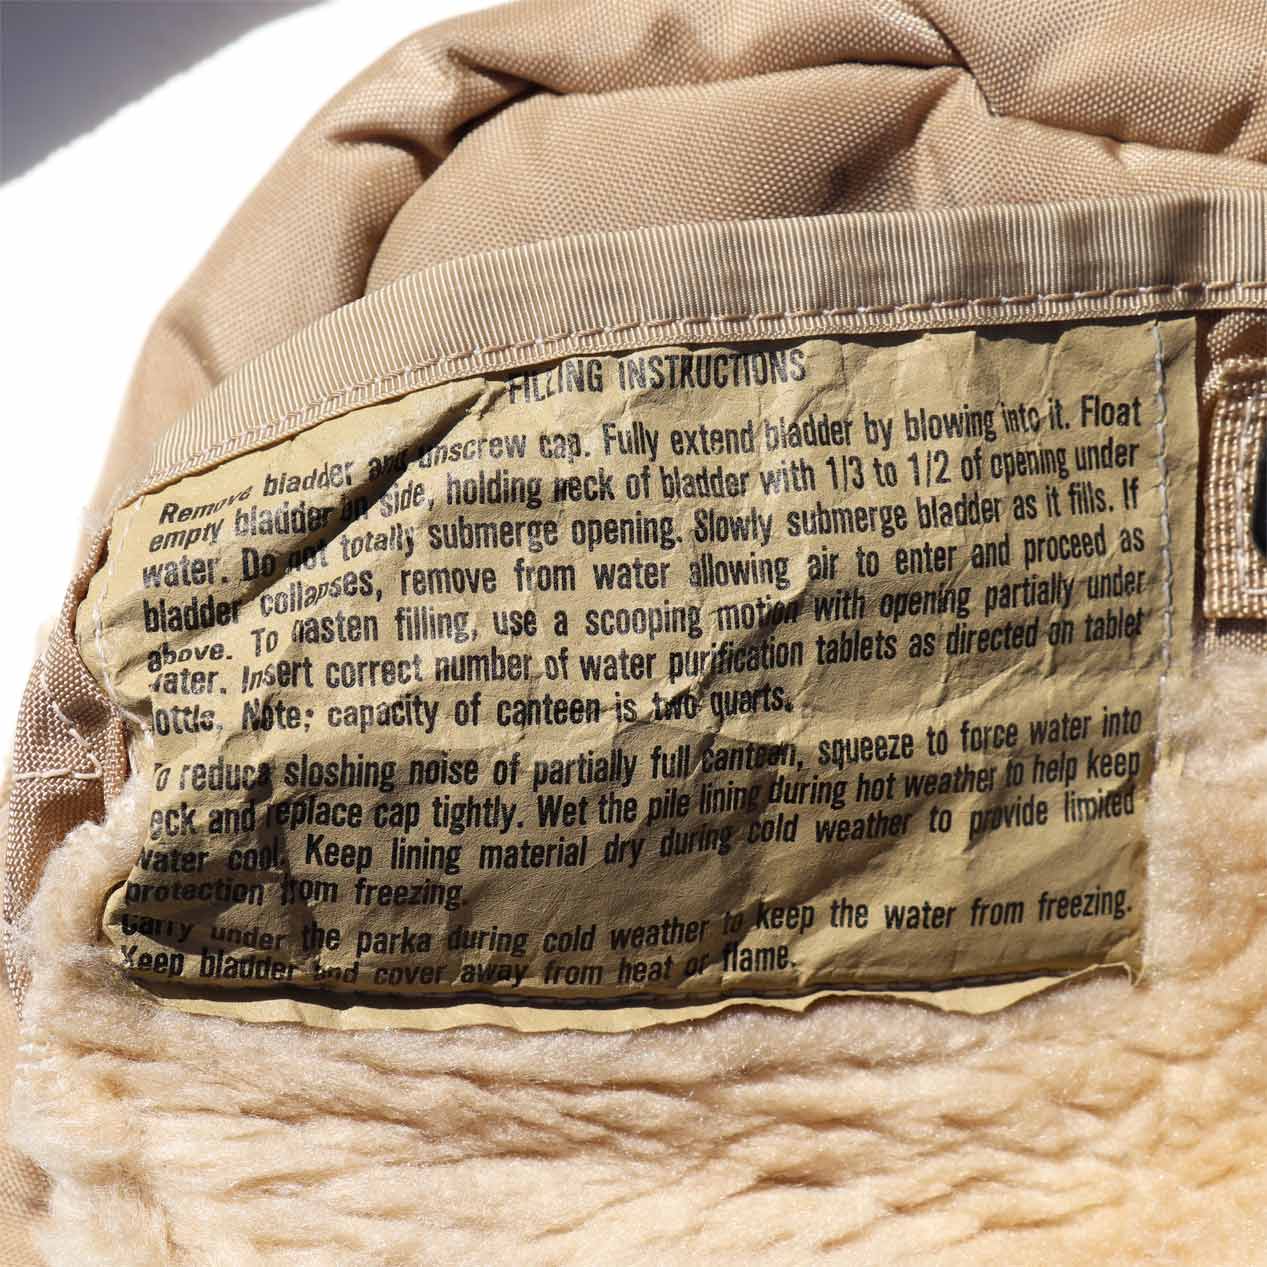 FILLING INSTRUCTIONS
Remove bladder and unscrew cap. Fully extend bladder by blowing into it. Float
empty bladder on side, holding neck of bladder with 1/3 to 1/2 of opening under
water. Do not totally submerge opening. Slowly submerge bladder as it fills. If
bladder collapses, remove from water allowing air to enter and proceed as
above. To hasten filling, use a scooping motion with opening partially under
ater. Insert correct number of water purification tablets as directed on tablet
ottle. Note; capacity of canteen is two quarts.
To reduce sloshing noise of partially full canteen, squeeze to force water into
eck and replace cap tightly. Wet the pile lining during hot weather to help keep
water cool. Keep lining material dry during cold weather to provide limited
protection from freezing.
Carry under the parka during cold weather to keep the water from freezing.
Keep bladder and cover away from heat or flame.